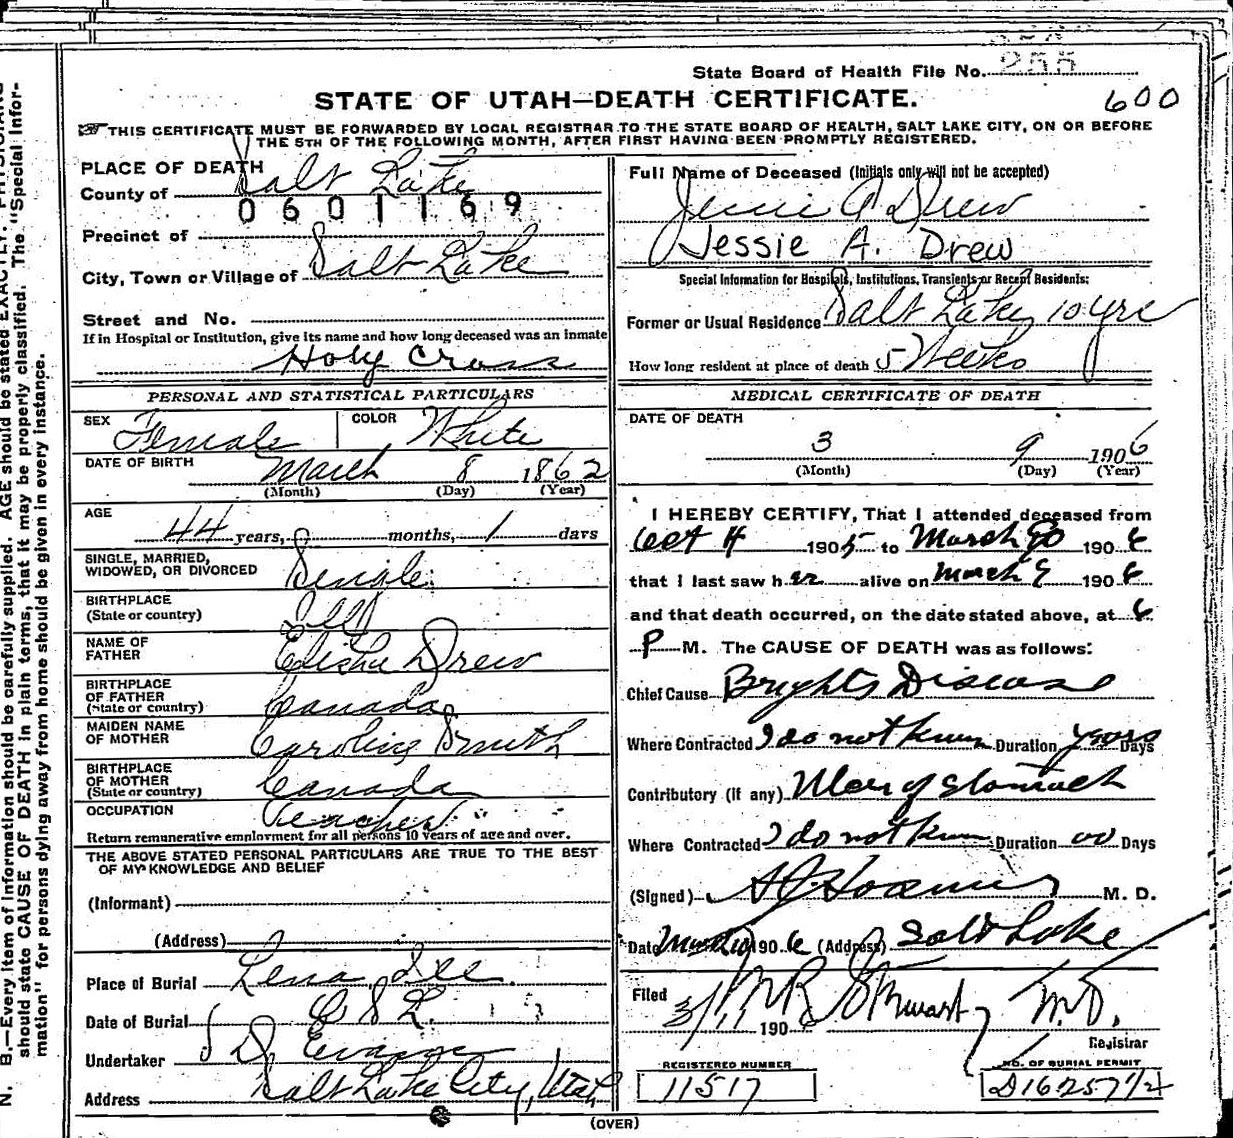 State Board of Health File No. 255
STATE OF UTAH—DEATH CERTIFICATE.
600
THIS CERTIFICATE MUST BE FORWARDED BY LOCAL REGISTRAR TO THE STATE BOARD OF HEALTH, SALT LAKE CITY, ON OR BEFORE
THE 5TH OF THE FOLLOWING MONTH, AFTER FIRST HAVING BEEN PROMPTLY REGISTERED.
PLACE OF DEATH
County of Salt Lake
0601169
Precinct of
City, Town or Village of Salt Lake
Street and No.
If in Hospital or Institution, give its name and how long deceased was an inmate
Holy Cross
PERSONAL AND STATISTICAL PARTICULARS
SEX Female COLOR White
DATE OF BIRTH March 8 1862
(Month) (Day) (Year)
AGE
44 years, 0 months, 1 days
SINGLE, MARRIED,
WIDOWED, OR DIVORCED Single
BIRTHPLACE
(State or country) Ills
NAME OF
FATHER Elisha Drew
BIRTHPLACE
OF FATHER
(State or country) Canada
MAIDEN NAME
OF MOTHER Caroline Smith
BIRTHPLACE
OF MOTHER
(State or country) Canada
OCCUPATION Teacher
Return remunerative employment for all persons 10 years of age and over.
THE ABOVE STATED PERSONAL PARTICULARS ARE TRUE TO THE BEST
OF MY KNOWLEDGE AND BELIEF
(Informant)
(Address)
Place of Burial Lena Ill
Date of Burial
Undertaker S D Evans
Address Salt Lake City, Utah
Full Name of Deceased (Initials only will not be accepted)
Jessie A Drew
Jessie A. Drew
Special Information for Hospitals, Institutions, Transients or Recent Residents:
Former or Usual Residence Salt Lake 10 yrs
How long resident at place of death 5 Weeks
MEDICAL CERTIFICATE OF DEATH
DATE OF DEATH
3 9 1906
(Month) (Day) (Year)
I HEREBY CERTIFY, That I attended deceased from
Oct 4 1905 to March 9 1906
that I last saw her alive on March 9 1906
and that death occurred, on the date stated above, at 6
P M. The CAUSE OF DEATH was as follows:
Chief Cause Brights Disease
Where Contracted I do not know Duration years Days
Contributory (if any) Ulcer of Stomach
Where Contracted I do not know Duration Days
(Signed) M. D.
Date March 10 1906 (Address) Salt Lake
Filed 3/11 1906 M R Stewart M.D.
Registrar
REGISTERED NUMBER
11517
NO. OF BURIAL PERMIT
D16257 1/2
(OVER)
N. B.—Every item of information should be carefully supplied. AGE should be stated EXACTLY. PHYSICIANS
should state CAUSE OF DEATH in plain terms, that it may be properly classified. The "Special Infor-
mation" for persons dying away from home should be given in every instance.